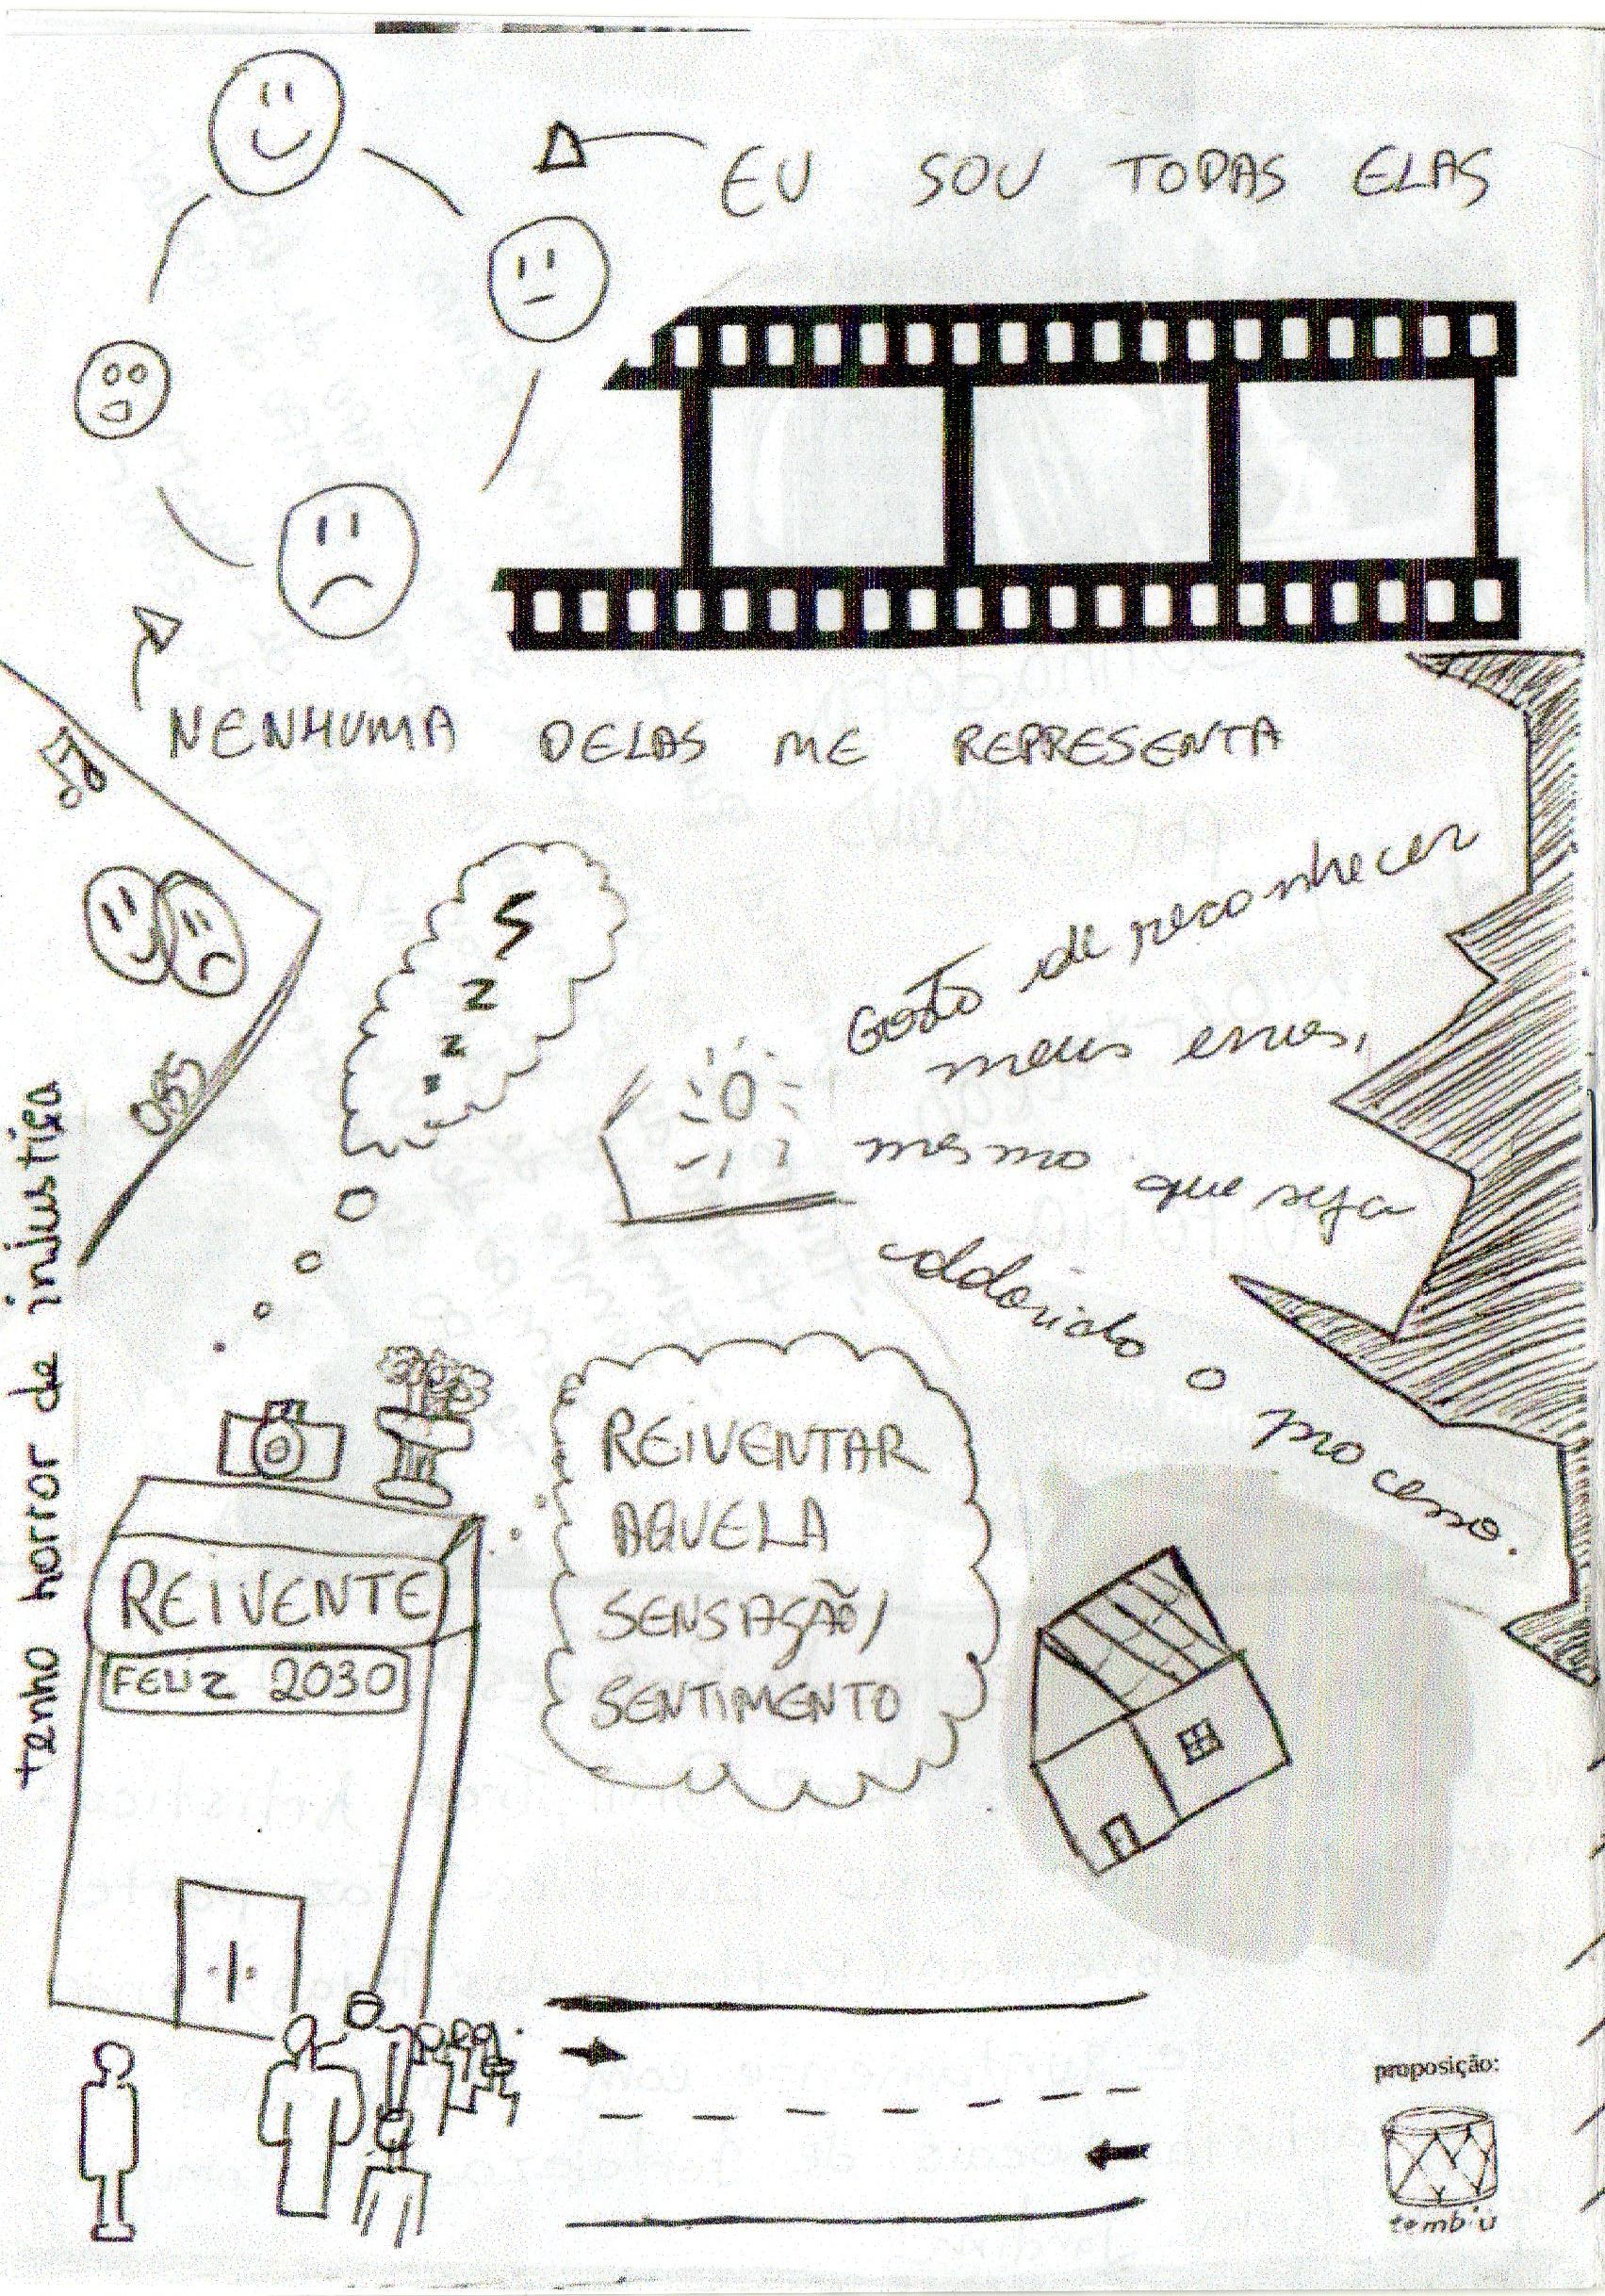 EU SOU TODAS ELAS
NENHUMA DELAS ME REPRESENTA
Gosto de reconhecer
meus erros,
mesmo que seja
coldorido o
processo.
S
z
z
z
OSS
tenho horror de injustiça
REIVENTAR
AQUELA
SENSAÇÃO/
SENTIMENTO
REIVENTE
FELIZ 2030
proposição:
tembiú